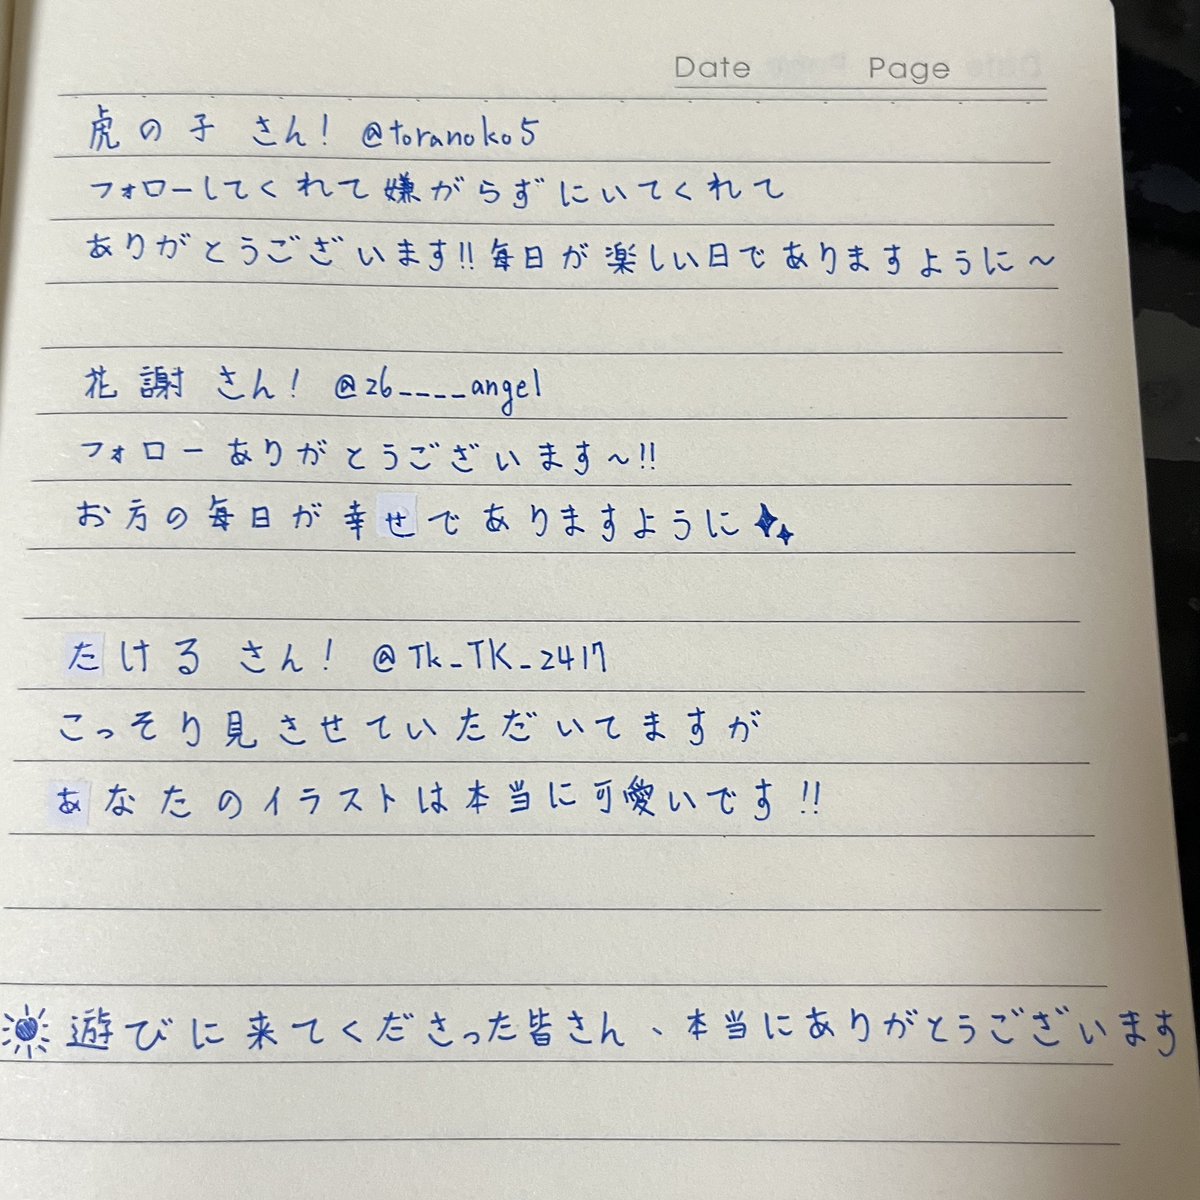 Date Page
虎の子 さん! @toranoko5
フォローしてくれて嫌がらずにいてくれて
ありがとうございます!!毎日が楽しい日でありますように〜
花謝 さん! @26____angel
フォローありがとうございます〜!!
お方の毎日が幸せでありますように
たける さん! @Tk_TK_2417
こっそり見させていただいてますが
あなたのイラストは本当に可愛いです!!
遊びに来てくださった皆さん、本当にありがとうございます